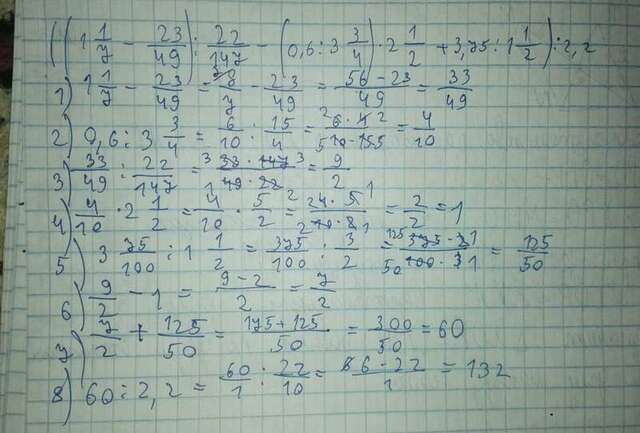 ((1 1/7 - 23/49) : 22/147 - (0,6 : 3 3/4) · 2 1/2 + 3,75 : 1 1/2) : 2,2
1) 1 1/7 - 23/49 = 8/7 - 23/49 = 56-23/49 = 33/49
2) 0,6 : 3 3/4 = 6/10 : 15/4 = = 4/10
3) 33/49 : 22/147 = 33·147/49·22 = 9/2
4) 4/10 · 2 1/2 = 4/10 · 5/2 = = 2/2 = 1
5) 3 75/100 : 1 1/2 = 375/100 : 3/2 = 375·2/100·3 = 125/50
6) 9/2 - 1 = 9-2/2 = 7/2
7) 7/2 + 125/50 = 175+125/50 = 300/50 = 60
8) 60 : 2,2 = 60/1 : 22/10 = = 132